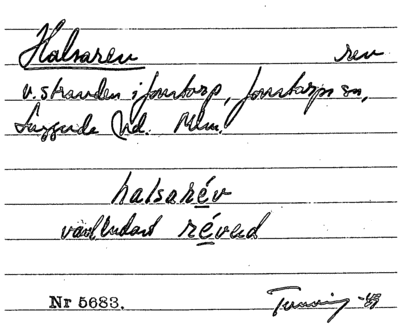 Halsarev rev
v. stranden i Jonstorp, Jonstorps sn,
Luggude hd. Mlm.
halsarév
vanl. endast réved
Nr 5683. -49